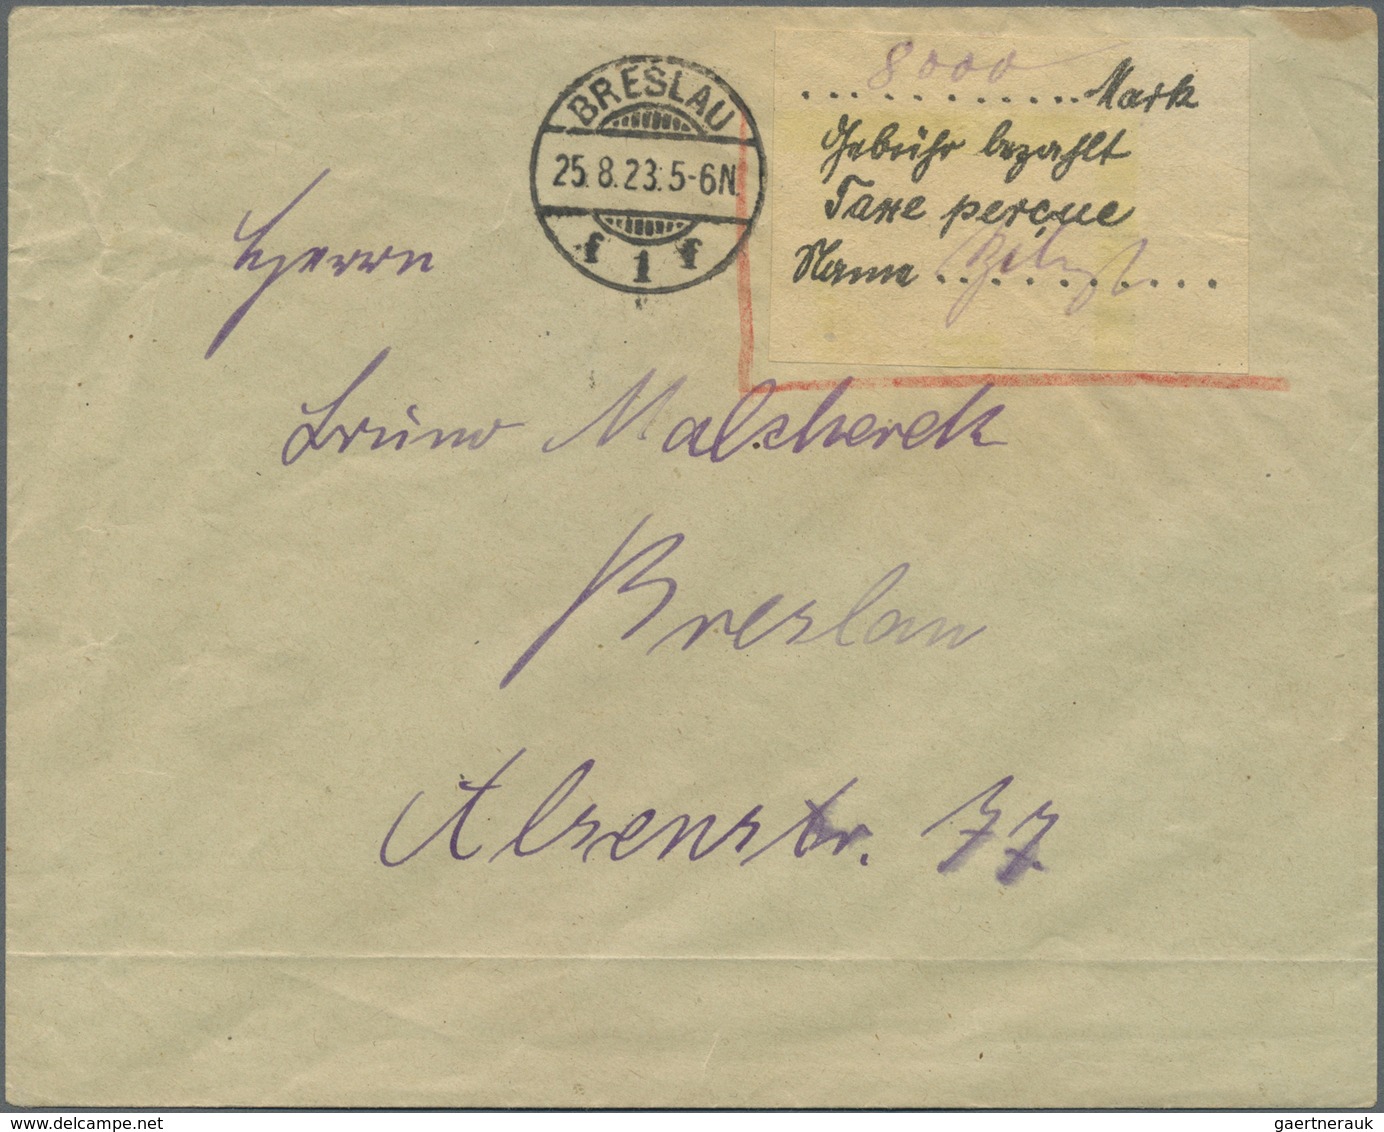 BRESLAU
25.8.23.5-6N.
f 1 f
8000
............Mark
Gebühr bezahlt
Taxe perçue
Name ............
Herrn
Bruno Malcherek
Breslau
Alsenstr. 77.
gaertnerauk @ www.delcampe.net